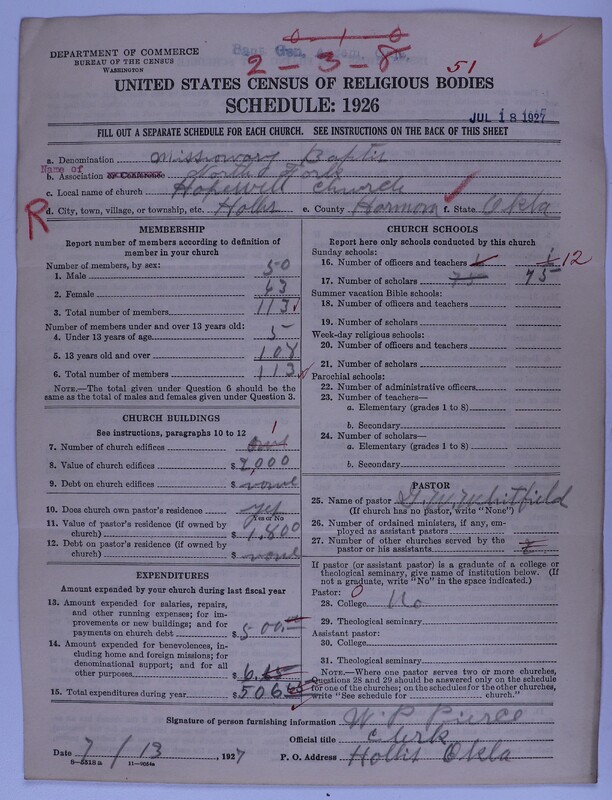 0 1 0
DEPARTMENT OF COMMERCE
BUREAU OF THE CENSUS
WASHINGTON
2-3-8
51
UNITED STATES CENSUS OF RELIGIOUS BODIES
SCHEDULE: 1926
JUL 18 1927
FILL OUT A SEPARATE SCHEDULE FOR EACH CHURCH. SEE INSTRUCTIONS ON THE BACK OF THIS SHEET
a. Denomination Missionary Baptis
Name of
b. Association or Conference North Fork
c. Local name of church Hopewell Church
R
d. City, town, village, or township, etc. Hollis e. County Harmon f. State Okla
MEMBERSHIP
Report number of members according to definition of
member in your church
Number of members, by sex:
1. Male 50
2. Female 63
3. Total number of members 113
Number of members under and over 13 years old:
4. Under 13 years of age 5
5. 13 years old and over 108
6. Total number of members 113
NOTE.—The total given under Question 6 should be
the same as total of males and females given under Question 3.
CHURCH BUILDINGS
See instructions, paragraphs 10 to 12
7. Number of church edifices one 1
8. Value of church edifices $ 2,000
9. Debt on church edifices $ none
10. Does church own pastor's residence yes
Yes or No
11. Value of pastor's residence (if owned by
church) $ 1,800
12. Debt on pastor's residence (if owned by
church) $ none
EXPENDITURES
Amount expended by your church during last fiscal year
13. Amount expended for salaries, repairs,
and other running expenses; for im-
provements or new buildings; and for
payments on church debt $ 500
14. Amount expended for benevolences,
including home and foreign missions; for
denominational support; and for all
other purposes $ 6
15. Total expenditures during year $ 506
CHURCH SCHOOLS
Report here only schools conducted by this church
Sunday schools:
16. Number of officers and teachers 12
17. Number of scholars 75 75
Summer vacation Bible schools:
18. Number of officers and teachers
19. Number of scholars
Week-day religious schools:
20. Number of officers and teachers
21. Number of scholars
Parochial schools:
22. Number of administrative officers
23. Number of teachers—
a. Elementary (grades 1 to 8)
b. Secondary
24. Number of scholars—
a. Elementary (grades 1 to 8)
b. Secondary
PASTOR
25. Name of pastor Whitfield
(If church has no pastor, write "None")
26. Number of ordained ministers, if any, em-
ployed as assistant pastors
27. Number of other churches served by the
pastor or his assistants
If pastor (or assistant pastor) is a graduate of a college or
theological seminary, give name of institution below. (If
not a graduate, write "No" in the space indicated.)
Pastor: 0
28. College No
29. Theological seminary
Assistant pastor:
30. College
31. Theological seminary
NOTE.—Where one pastor serves two or more churches,
Questions 28 and 29 should be answered only on the schedule
for one of the churches; on the schedules for the other churches,
write "See schedule for church."
Signature of person furnishing information W. P. Pierce
Official title Clerk
Date 7/13, 1927 P. O. Address Hollis Okla
8-5518 a